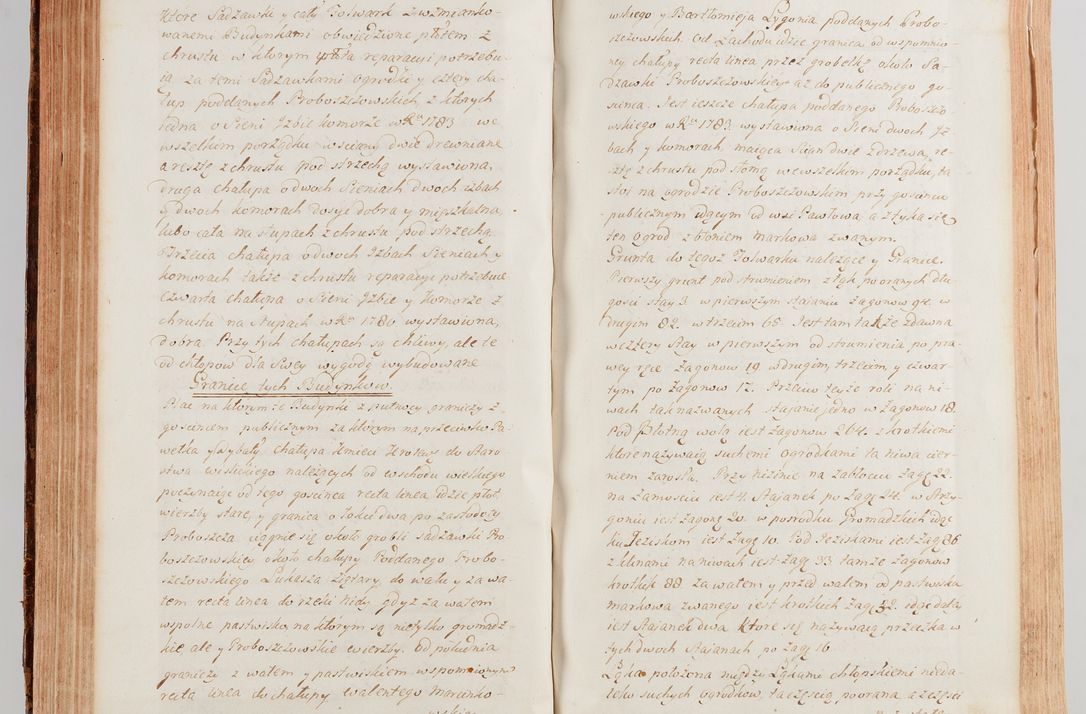 które Sadzawki y cały Folwark z wzmianko-
wanemi Budynkami obwiedzione płotem z
chrustu w ktorym reparacyi potrzebu-
ią za temi Sadzawkami ogrodki y cztery cha-
łup poddanych Proboszczowskich, z ktorych
iedna o Sieni Izbie komorze w Ru 1783 we
wszelkim porządku w sciany dwie drewniane
a resztę z chrustu pod strzechą wystawiona,
druga chałupa o dwoch Sieniach dwoch izbach
y dwoch komorach dosyć dobra y mieszkalna
lubo cała na słupach z chrustu pod strzechą
Trzecia chałupa o dwoch Izbach Sieniach y
komorach także z chrustu reparacyi potrzebuie
Czwarta chałupa o Sieni Izbie y komorze z
chrustu na słupach w Ru 1780 wystawiona,
dobra. Przy tych chałupach są chliwy, ale te
od chłopow dla swey wygody wybudowane
Granice tych Budynkow.
Plac na ktorym te Budynki z graniczy z
goscincem publicznym za ktorym na przeciwko Pa-
wełka y chałupa Kmieci do Staro-
stwa należących od wschodu wielkiego
poczynaiąc od tego goscinca recta linea idzie płot
wierzby stare, y granica o łokci dwa po za stodoły
Proboszcza, ciągnie się około grobli sadzawki Pro-
boszczowskiey, około chałupy Poddanego Probo-
szczowskiego Łukasza do wału y za wa-
łem recta linea do rzeki Nidy gdyż za wałem
wspolne pastwisko, na ktorym są nietylko gromadz-
kie ale y Proboszczowskie wierzby. Od południa
graniczy z wałem y pastwiskiem wspomnionym
recta linea do chałupy Walentego Marcinko-
wskiego y Bartłomieja Łygonia poddanych Probo-
szczowskich. Od Zachodu idzie granica od wspomnio-
ney chałupy recta linea przez grobelkę około Sa-
dzawki Proboszczowskiey aż do publicznego go-
scinca. Jest ieszcze chałupa poddanego Proboszczo-
wskiego w Ru 1783 wystawiona o Sieni dwoch Iz-
bach y komorach maiąca ścian dwie z drzewa, re-
sztę z chrustu pod słomą w wszelkim porządku, ta
stoi na ogrodzie Proboszczowskim przy goscincu
publicznym idącym od wsi Pawłowa, a ztyka się
ten ogrod z błoniem markowa zwanym.
Grunta do tegoż Folwarku należące y Granice.
Pierwszy grunt pod strumieniem z łąk pooranych dłu-
gosci stay 3. w pierwszym stajaniu zagonow 91. w
drugim 82. w trzecim 65 Jest tam także zdawna
w cztery stay w pierwszym od strumienia, po pra-
wey ręce zagonow 19 w drugim, trzecim, y czwar-
tym po zagonow 12. Przeciw teyże roli na ni-
wach tak nazwanych stajanie jedno w zagonow 18.
Pod Błotną wolą iest zagonow 264. z krotkiemi
ktore nazywaią suchemi ogrodkami ta niwa cier-
niem zarosła. Przy Nizinie na zabłociu zag: 22.
na Zamosciu iest 4. Stajanek po zag: 24. w
goniu iest zagonę 20. w posrodku Gromadzkich idąc
ku Jeziskom iest zag: 10. Pod Jeziskami iest zag: 86
z klinami na niwach iest zag: 33 tamże zagonow
krotkie 88 za wałem y przed wałem od pastwiska
markowa zwanego iest krotkich zag: 32. idąc daley
iest Stajanek dwa ktore się nazywaią przeczka w
tych dwoch Stajanach po zag: 16
Łąka położona między Łąkami chłopskiemi nieda-
leko suchych ogrodkow, ta częscią poorana a częsci